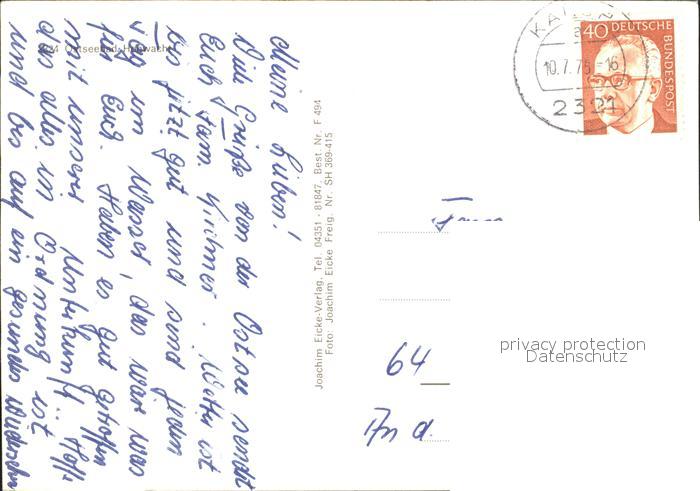 Meine Lieben!
Viele Grüße von der Ostsee sendet
Euch Fam. . Wetter ist
bis jetzt gut und sind jeden
Tag im Wasser, das wär was
für Euch. Haben es gut getroffen
mit unserer Unterkunft. Hoffe
das alles in Ordnung ist
und bis auf ein gesundes Wiedersehn
2324 Ostseebad Hohwacht
Joachim Eicke-Verlag, Tel. 04351 - 81847, Best. Nr. F 494
Foto: Joachim Eicke Freig. Nr. SH 369-415
40 DEUTSCHE BUNDESPOST
10.7.75-16
2321
64
privacy protection
Datenschutz
An d.